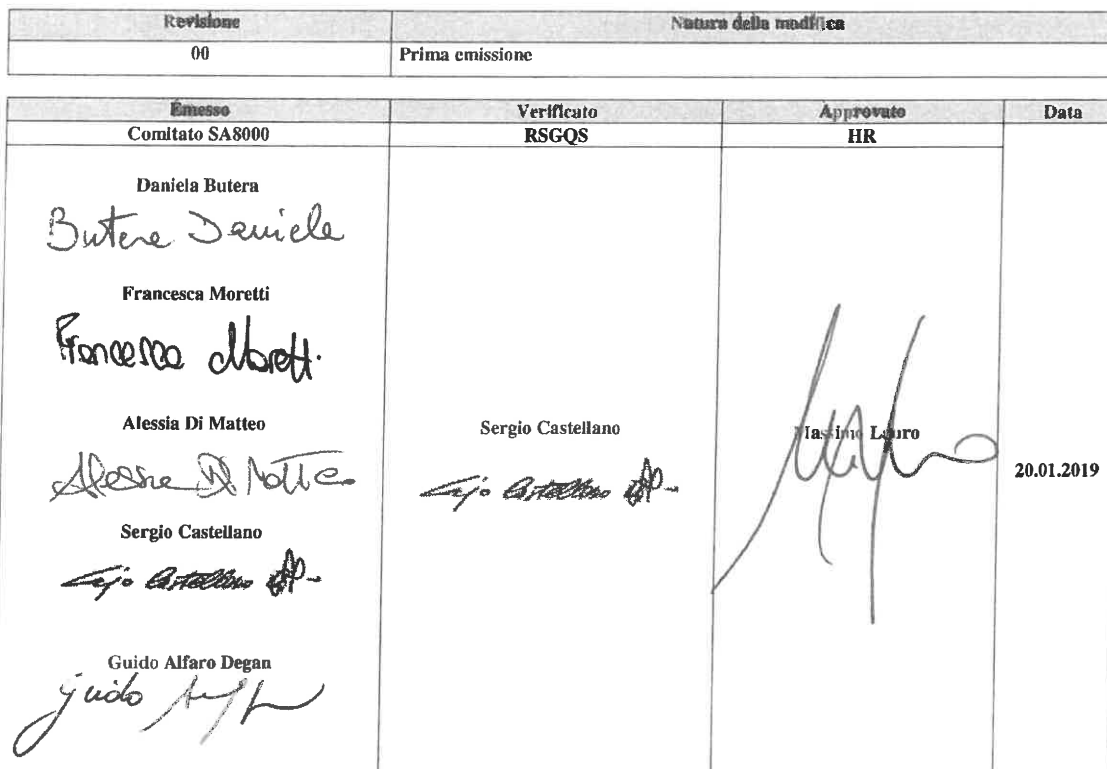 Revisione Natura della modifica
00 Prima emissione
Emesso Verificato Approvato Data
Comitato SA8000 RSGQS HR
Daniela Butera
Butera Daniela
Francesca Moretti
Francesca Moretti
Alessia Di Matteo
Alessia Di Matteo
Sergio Castellano
Castellano
Massimo Lauro
20.01.2019
Sergio Castellano
Castellano
Guido Alfaro Degan
Guido